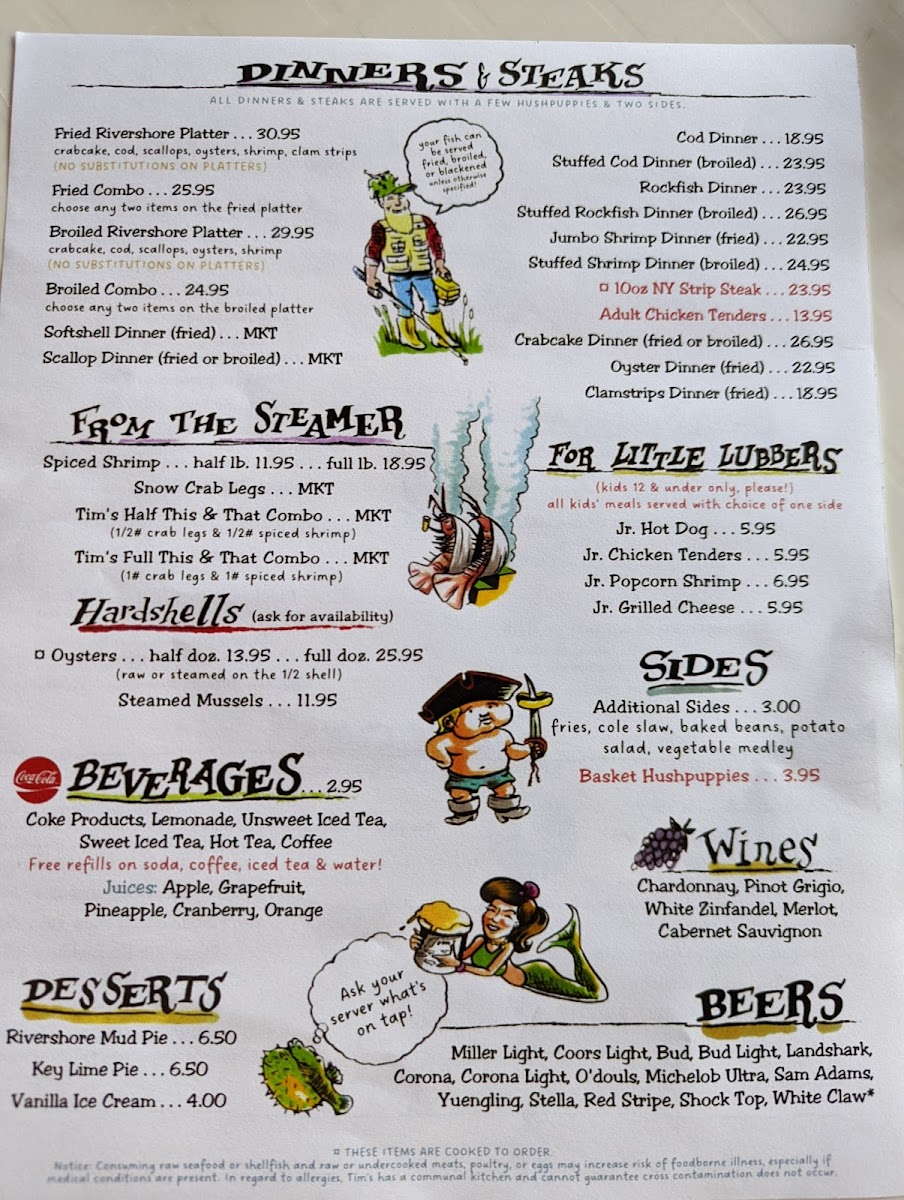 DINNERS & STEAKS
ALL DINNERS & STEAKS ARE SERVED WITH A FEW HUSHPUPPIES & TWO SIDES.
Fried Rivershore Platter . . . 30.95
crabcake, cod, scallops, oysters, shrimp, clam strips
(NO SUBSTITUTIONS ON PLATTERS)
Fried Combo . . . 25.95
choose any two items on the fried platter
Broiled Rivershore Platter . . . 29.95
crabcake, cod, scallops, oysters, shrimp
(NO SUBSTITUTIONS ON PLATTERS)
Broiled Combo . . . 24.95
choose any two items on the broiled platter
Softshell Dinner (fried) . . . MKT
Scallop Dinner (fried or broiled) . . . MKT
your fish can
be served
fried, broiled,
or blackened
unless otherwise
specified!
Cod Dinner . . . 18.95
Stuffed Cod Dinner (broiled) . . . 23.95
Rockfish Dinner . . . 23.95
Stuffed Rockfish Dinner (broiled) . . . 26.95
Jumbo Shrimp Dinner (fried) . . . 22.95
Stuffed Shrimp Dinner (broiled) . . . 24.95
¤ 10oz NY Strip Steak . . . 23.95
Adult Chicken Tenders . . . 13.95
Crabcake Dinner (fried or broiled) . . . 26.95
Oyster Dinner (fried) . . . 22.95
Clamstrips Dinner (fried) . . . 18.95
FROM THE STEAMER
Spiced Shrimp . . . half lb. 11.95 . . . full lb. 18.95
Snow Crab Legs . . . MKT
Tim's Half This & That Combo . . . MKT
(1/2# crab legs & 1/2# spiced shrimp)
Tim's Full This & That Combo . . . MKT
(1# crab legs & 1# spiced shrimp)
Hardshells (ask for availability)
¤ Oysters . . . half doz. 13.95 . . . full doz. 25.95
(raw or steamed on the 1/2 shell)
Steamed Mussels . . . 11.95
FOR LITTLE LUBBERS
(kids 12 & under only, please!)
all kids' meals served with choice of one side
Jr. Hot Dog . . . 5.95
Jr. Chicken Tenders . . . 5.95
Jr. Popcorn Shrimp . . . 6.95
Jr. Grilled Cheese . . . 5.95
SIDES
Additional Sides . . . 3.00
fries, cole slaw, baked beans, potato
salad, vegetable medley
Basket Hushpuppies . . . 3.95
Coca-Cola
BEVERAGES . . . 2.95
Coke Products, Lemonade, Unsweet Iced Tea,
Sweet Iced Tea, Hot Tea, Coffee
Free refills on soda, coffee, iced tea & water!
Juices: Apple, Grapefruit,
Pineapple, Cranberry, Orange
Wines
Chardonnay, Pinot Grigio,
White Zinfandel, Merlot,
Cabernet Sauvignon
DESSERTS
Rivershore Mud Pie . . . 6.50
Key Lime Pie . . . 6.50
Vanilla Ice Cream . . . 4.00
Ask your
server what's
on tap!
BEERS
Miller Light, Coors Light, Bud, Bud Light, Landshark,
Corona, Corona Light, O'douls, Michelob Ultra, Sam Adams,
Yuengling, Stella, Red Stripe, Shock Top, White Claw*
¤ THESE ITEMS ARE COOKED TO ORDER.
Notice: Consuming raw seafood or shellfish and raw or undercooked meats, poultry, or eggs may increase risk of foodborne illness, especially if
medical conditions are present. In regard to allergies, Tim's has a communal kitchen and cannot guarantee cross contamination does not occur.